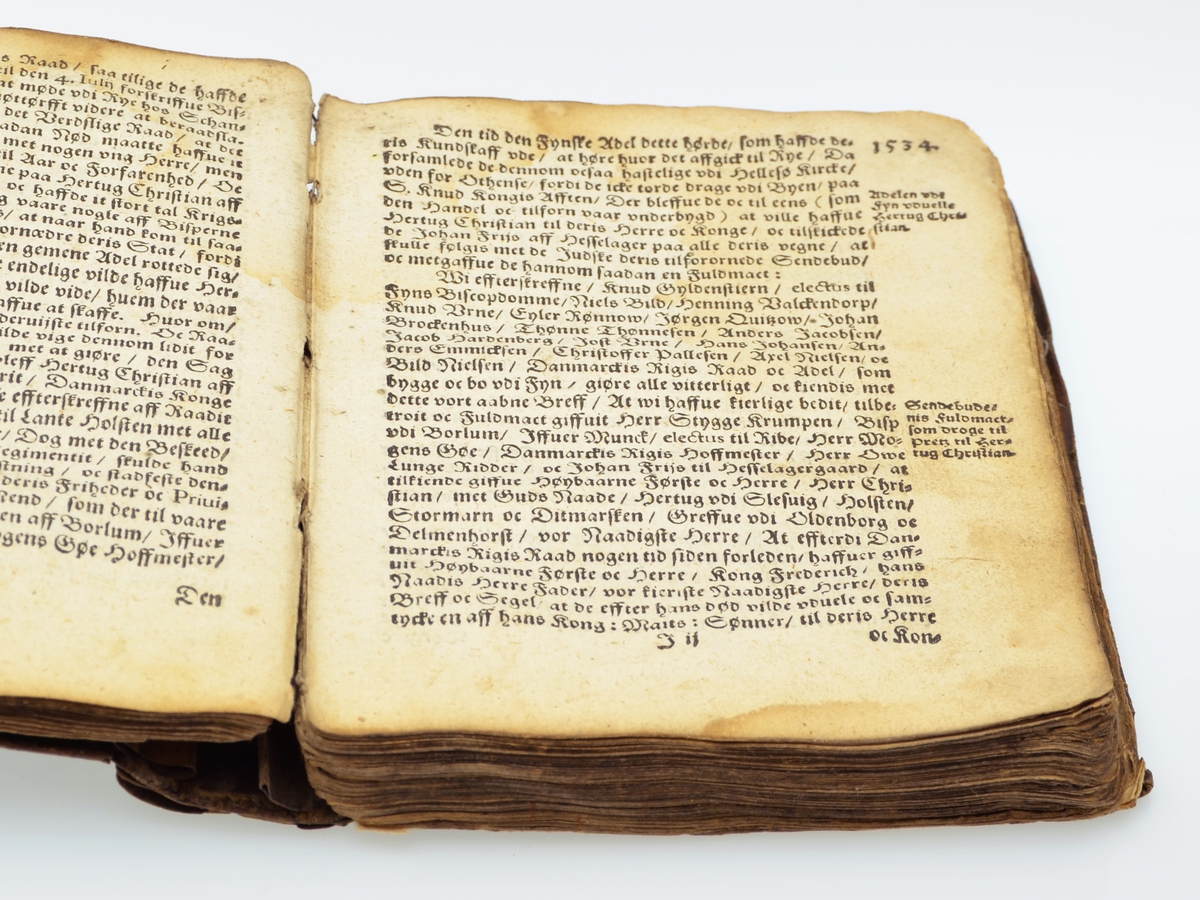 s Raad / saa tilige de haffde
til den 4. Iulij forskriffue Bis-
at møde vdi Rye hos Schan-
nøttørfft videre at beraadsla-
det Verdslige Raad / at det
aadan Nød maatte haffue it
met nogen vng Herre / men
til Aar oc Forfarenhed / De
ne paa Hertug Christian aff
oc haffde it stort tal Krigs-
g vaare nogle aff Bisperne
s / at naar hand kom til saa-
fornædre deris Stat / fordi
en gemene Adel rottede sig /
e endelige vilde haffue Her-
vilde vide / huem der vaar
affue at skaffe. Huor om /
deruijste tilforn. De Raa-
ilde vige dennom lidit for
met at giøre / den Sag
bleff Hertug Christian aff
rit / Danmarckis Konge
e effterskreffne aff Raadit
til Lante Holsten met alle
/ Dog met den Beskeed /
Regimentit / skulde hand
stning / oc stadfeste den-
deris Friheder oc Priui-
Mend / som der til vaare
en aff Borlum / Iffuer
ogens Gøe Hoffmester /
Den
1534.
Den tid den Fynske Adel dette hørde / som haffde de-
ris Kundskaff vde / at høre huor det affgick til Rye / Da
forsamlede de dennom ocsaa hastelige vdi Hellesø Kircke /
vden for Othense / fordi de icke torde drage vdi Byen / paa
S. Knud Kongis Afften / Der bleffue de oc til eens ( som
den Handel oc tilforn vaar vnderbygd ) at ville haffue
Hertug Christian til deris Herre oc Konge / oc tilskickede
de Johan Frijs aff Hesselager paa alle deris vegne / at
skulle følgis met de Judske deris tilforordnede Sendebud /
oc metgaffue de hannom saadan en Fuldmact :
Adelen vdi
Fyn vduelle
Hertug Chri-
stian.
Wi effterskreffne / Knud Gyldenstiern / electus til
Fyns Biscopdomme / Niels Bild / Henning Valckendorp /
Knud Vrne / Eyler Rønnow / Jørgen Quitzow / Johan
Brockenhus / Thønne Thønnesen / Anders Jacobsen /
Jacob Hardenberg / Jost Vrne / Hans Johansen / An-
ders Emmicksen / Christoffer Pallesen / Axel Nielsen / oc
Bild Nielsen / Danmarckis Rigis Raad oc Adel / som
bygge oc bo vdi Fyn / giøre alle vitterligt / oc kiendis met
dette vort aabne Breff / At wi haffue kierlige bedit / tilbe-
troit oc Fuldmact giffuit Herr Stygge Krumpen / Bisp
vdi Borlum / Iffuer Munck / electus til Ribe / Herr Mo-
gens Gøe / Danmarckis Rigis Hoffmester / Herr Owe
Lunge Ridder / oc Johan Frijs til Hesselagergaard / at
tilkiende giffue Høybaarne Første oc Herre / Herr Chri-
stian / met Guds Naade / Hertug vdi Slesuig / Holsten /
Stormarn oc Ditmarsken / Greffue vdi Oldenborg oc
Delmenhorst / vor Naadigste Herre / At effterdi Dan-
marckis Rigis Raad nogen tid siden forleden / haffuer giff-
uit Høybaarne Første oc Herre / Kong Frederich / hans
Naadis Herre Fader / vor kierste Naadigste Herre / deris
Breff oc Segel at de effter hans død vilde vduele oc sam-
tycke en aff hans Kong : Maits : Sønner / til deris Herre
Sendebude-
nis Fuldmact
som droge til
Pretz til Her-
tug Christian
J ij
oc Kon-